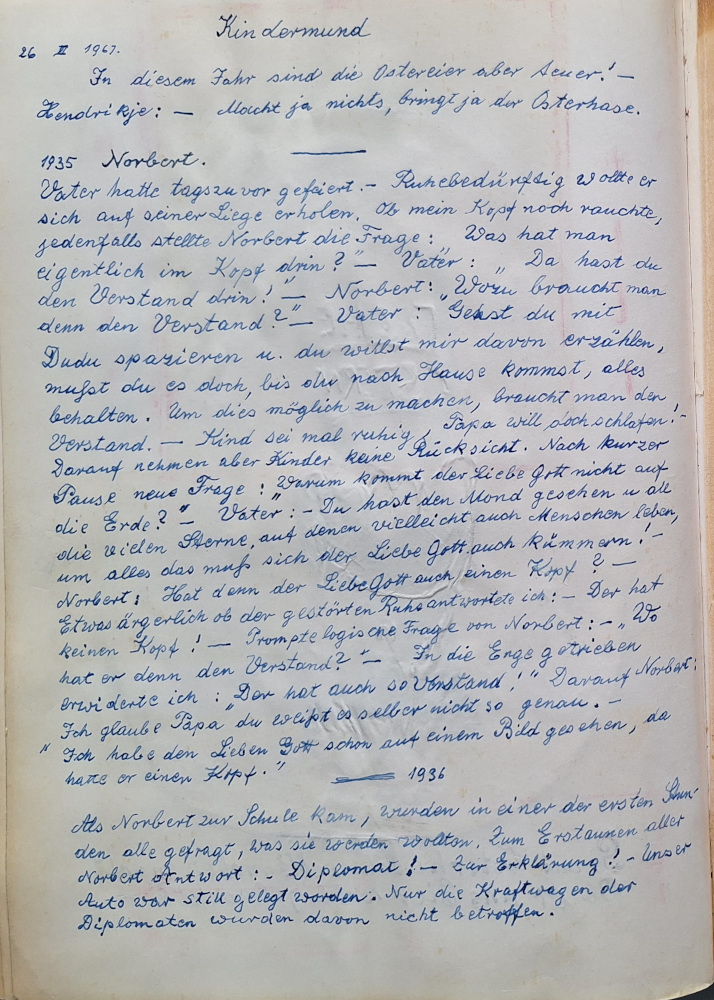 Kindermund
26 II 1967.
In diesem Jahr sind die Ostereier aber teuer! —
Hendrikje: — Macht ja nichts, bringt ja der Osterhase.
1935 Norbert.
Vater hatte tagszuvor gefeiert. — Ruhebedürftig wollte er
sich auf seiner Liege erholen. Ob mein Kopf noch rauchte,
jedenfalls stellte Norbert die Frage: „Was hat man
eigentlich im Kopf drin?" — Vater: „Da hast du
den Verstand drin!" — Norbert: „Wozu braucht man
denn den Verstand?" — Vater: Gehst du mit
Dudu spazieren u. du willst mir davon erzählen,
mußt du es doch, bis du nach Hause kommst, alles
behalten. Um dies möglich zu machen, braucht man den
Verstand. — Kind sei mal ruhig, Papa will doch schlafen! —
Darauf nehmen aber Kinder keine Rücksicht. Nach kurzer
Pause neue Frage: „Warum kommt der Liebe Gott nicht auf
die Erde?" — Vater: — Du hast den Mond gesehen u all
die vielen Sterne, auf denen vielleicht auch Menschen leben,
um alles das muß sich der Liebe Gott auch kümmern! —
Norbert: Hat denn der Liebe Gott auch einen Kopf? —
Etwas ärgerlich ob der gestörten Ruhe antwortete ich: — Der hat
keinen Kopf! — Prompte logische Frage von Norbert: — „Wo
hat er denn den Verstand?" — In die Enge getrieben
erwiderte ich: „Der hat auch so Verstand!" Darauf Norbert:
Ich glaube Papa „du weißt es selber nicht so genau. —
„Ich habe den Lieben Gott schon auf einem Bild gesehen, da
hatte er einen Kopf."
1936
Als Norbert zur Schule kam, wurden in einer der ersten Stun-
den alle gefragt, was sie werden wollten. Zum Erstaunen aller
Norbert Antwort: — Diplomat! — Zur Erklärung! — Unser
Auto war still gelegt worden. Nur die Kraftwagen der
Diplomaten wurden davon nicht betroffen.